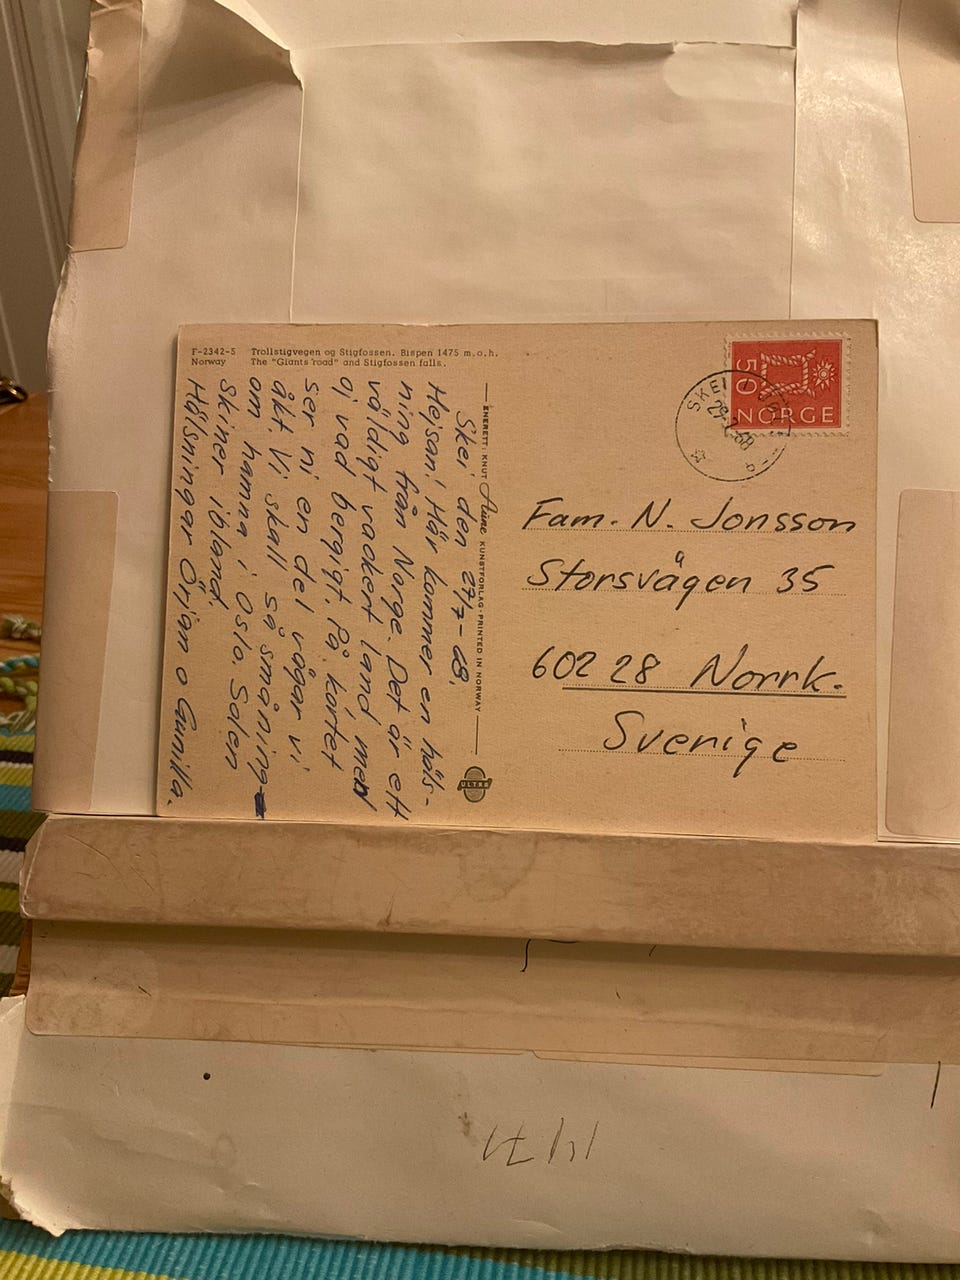 F-2342-5 Trollstigvegen og Stigfossen. Bispen 1475 m.o.h.
Norway The "Giants road" and Stigfossen falls.
Skei den 27/7-68.
Hejsan! Här kommer en häls-
ning från Norge. Det är ett
väldigt vackert land, men
oj vad bergigt. På kortet
ser ni en del vägar vi
åkt. Vi skall så småning-
om hamna i Oslo. Solen
skiner ibland.
Hälsningar Örjan o Gunilla.
ENERETT: KNUT Aune KUNSTFORLAG · PRINTED IN NORWAY
ULTRA
50
NORGE
SKEI I
Fam. N. Jonsson
Storsvägen 35
602 28 Norrk.
Sverige